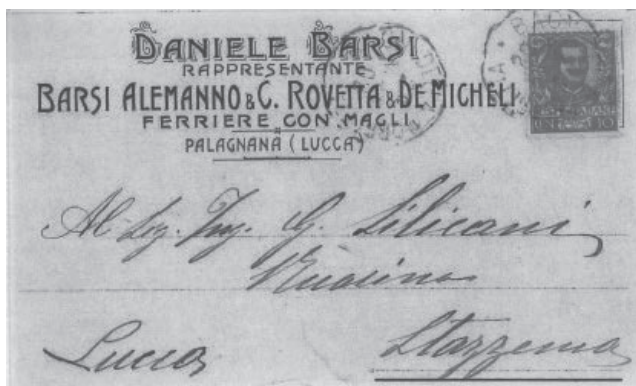 DANIELE BARSI
RAPPRESENTANTE
BARSI ALEMANNO & C. ROVETTA & DE MICHELI
FERRIERE CON MAGLI
PALAGNANA (LUCCA)
Al Sig. Ing. G.
Lucca Stazzema